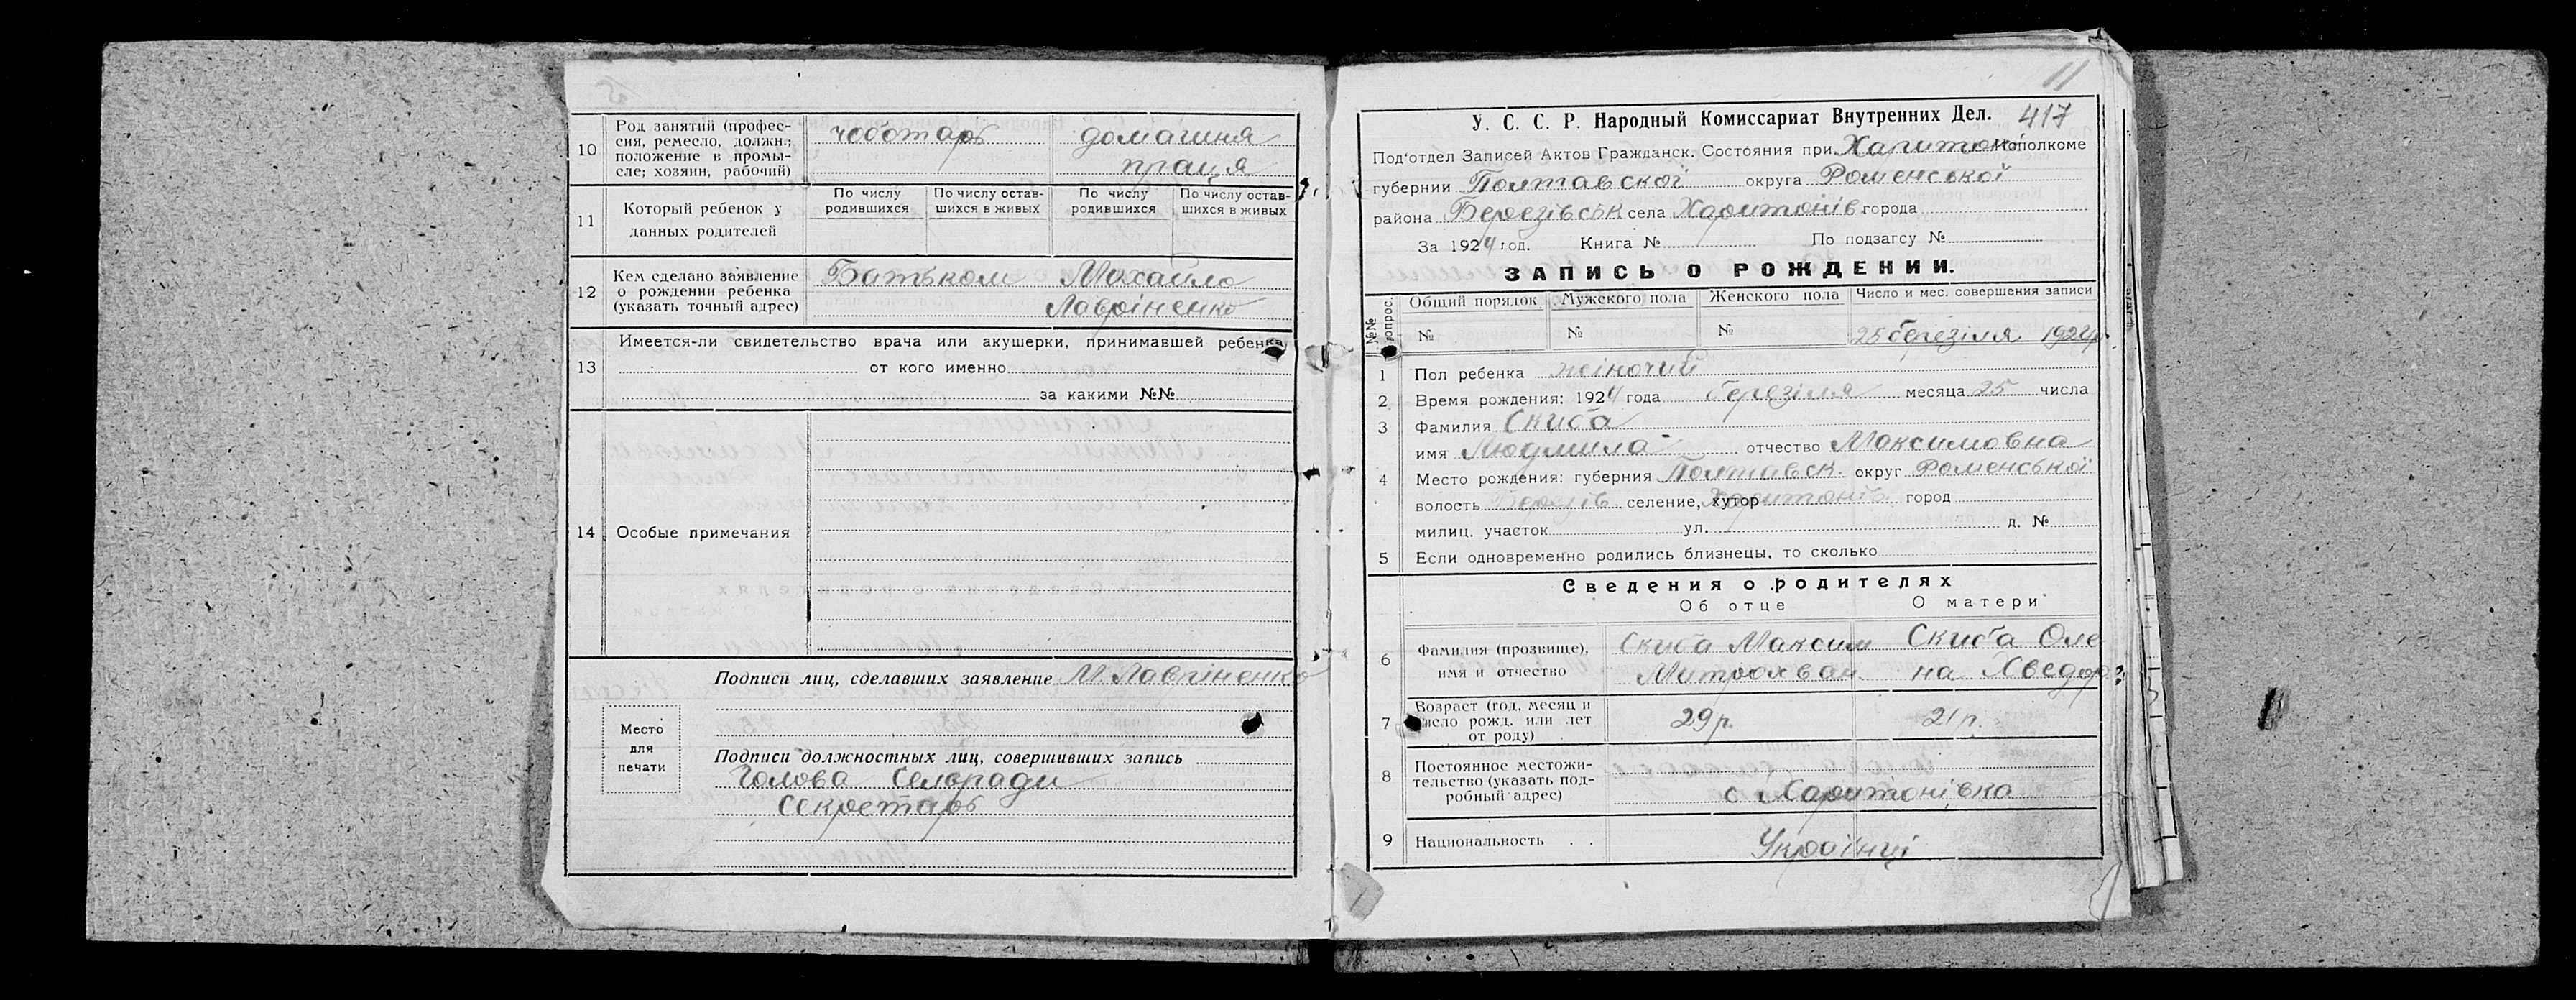 10
Род занятий (профес-
сия, ремесло, должн.;
положение в промы-
сле; хозяин, рабочий)
чоботарь
домашня
праця
11
Который ребенок у
данных родителей
По числу
родившихся
По числу остав-
шихся в живых
По числу
родившихся
По числу остав-
шихся в живых
12
Кем сделано заявление
о рождении ребенка
(указать точный адрес)
Батьком Михайло
Лавріненко
13
Имеется-ли свидетельство врача или акушерки, принимавшей ребенка
от кого именно
за какими №№
14
Особые примечания
Подписи лиц, сделавших заявление М Лавріненко
Место
для
печати
Подписи должностных лиц, совершивших запись
Голова Сельради
Секретарь
11
У. С. С. Р. Народный Комиссариат Внутренних Дел. 417
Под'отдел Записей Актов Гражданск. Состояния при Исполкоме
губернии Полтавської округа Роменської
района Березівськ села Харитонів города
За 1924 год. Книга № По подзагсу №
ЗАПИСЬ О РОЖДЕНИИ.
№№ вопрос.
Общий порядок
Мужского пола
Женского пола
Число и мес. совершения записи
№
№
№
25 березіля 1924 р.
1 Пол ребенка жіночий
2 Время рождения: 1924 года березіля месяца 25 числа
3 Фамилия Скиба
имя Людмила отчество Максимовна
4 Место рождения: губерния Полтавськ. округ Роменської
волость Березів селение, хутор Харитонів город
милиц. участок ул. д. №
5 Если одновременно родились близнецы, то сколько
Сведения о родителях
Об отце О матери
6
Фамилия (прозвище),
имя и отчество
Скиба Максим
Митрохван
Скиба Оле
на Хведор
7
Возраст (год, месяц и
число рожд. или лет
от роду)
29 р.
21 р.
8
Постоянное местожи-
тельство (указать под-
робный адрес)
с Харитонівка
9 Национальность . . Українці